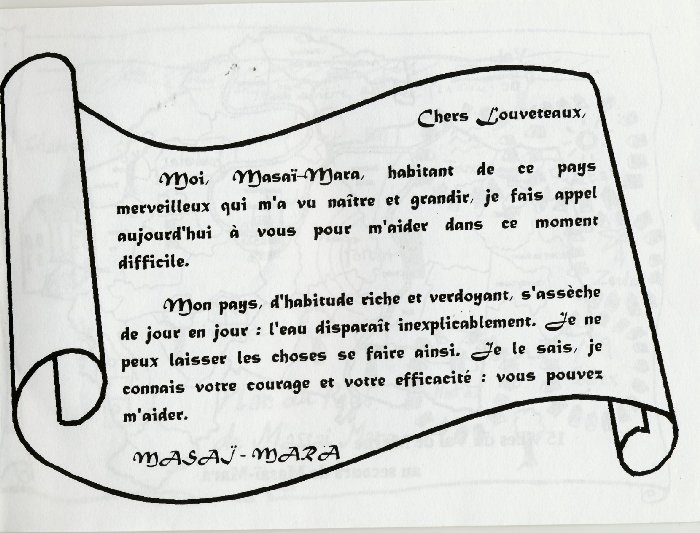 Chers Louveteaux,
Moi, Masaï-Mara, habitant de ce pays
merveilleux qui m'a vu naître et grandir, je fais appel
aujourd'hui à vous pour m'aider dans ce moment
difficile.
Mon pays, d'habitude riche et verdoyant, s'assèche
de jour en jour : l'eau disparaît inexplicablement. Je ne
peux laisser les choses se faire ainsi. Je le sais, je
connais votre courage et votre efficacité : vous pouvez
m'aider.
MASAÏ - MARA